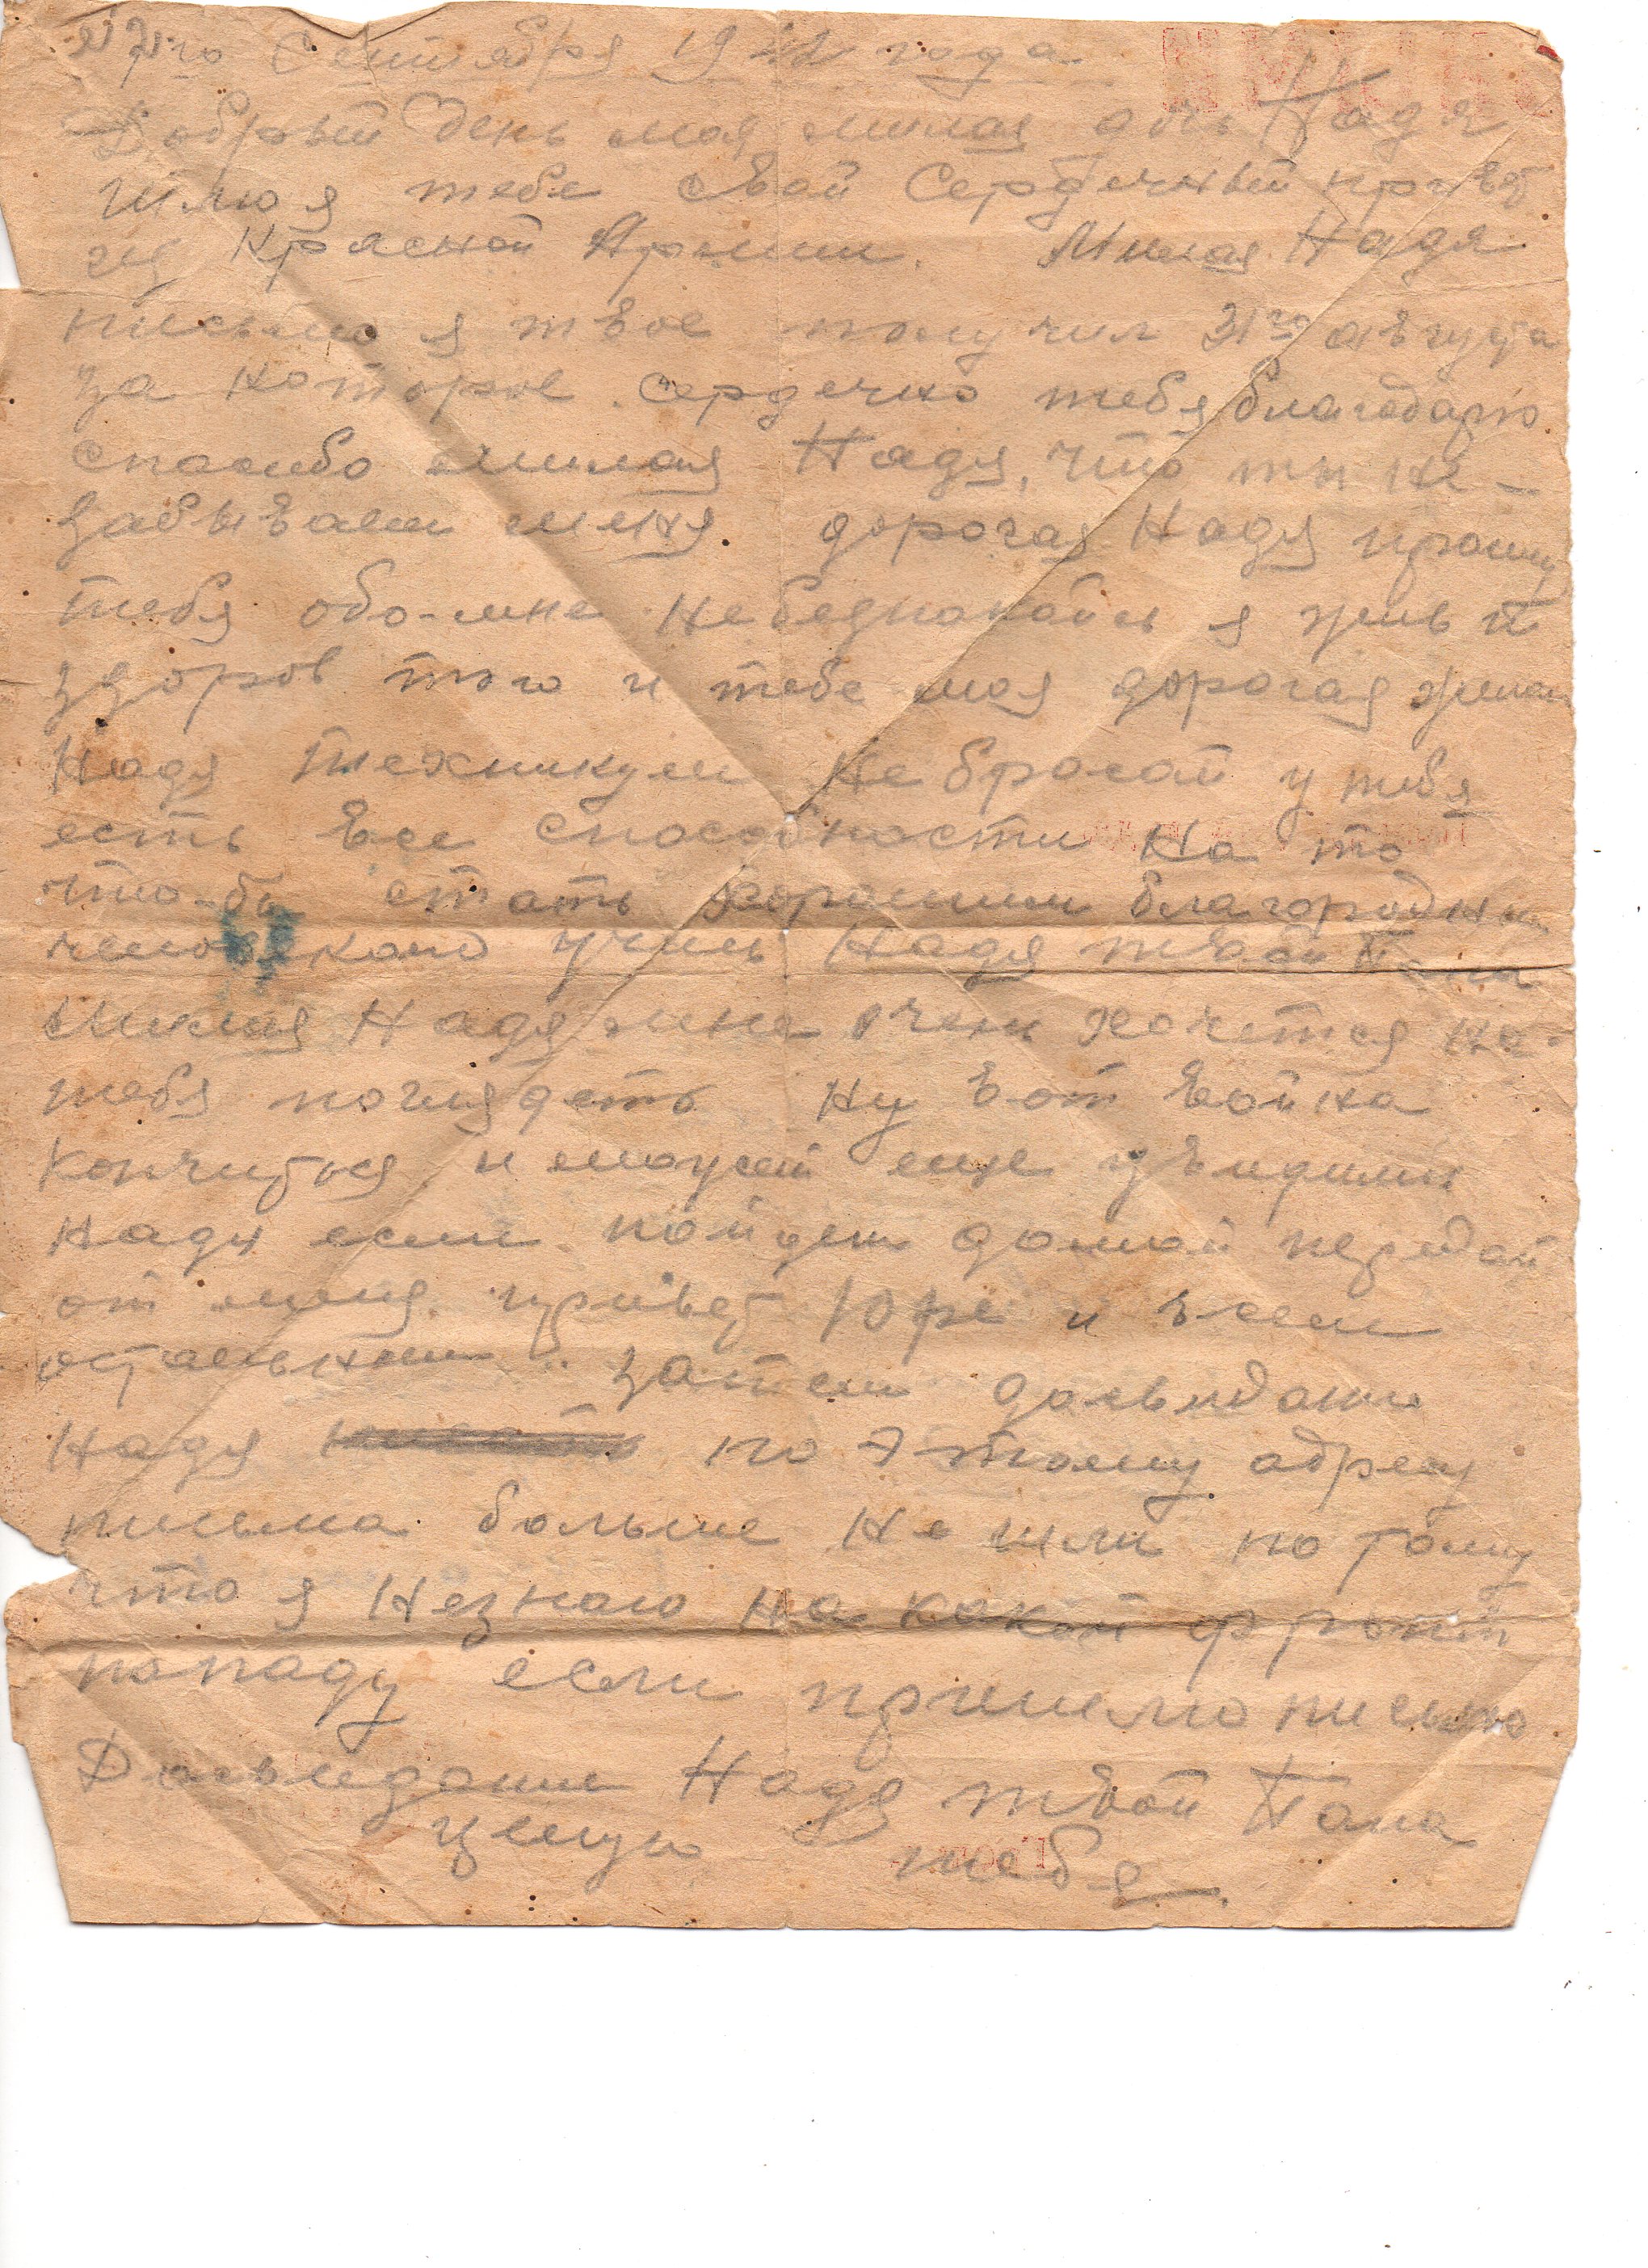 Сентября 1942 года
Добрый День моя милая дочь Надя
шлю я тебе свой Сердечный привет
из Красной Армии. Милая Надя
письмо я твое получил 31го августа
за которое сердечно тебя благодарю
спасибо милая Надя, что ты не-
забываеш меня. дорогая Надя прошу
тебя обо-мне небеспокойсь я жив и
здоров того и тебе моя дорогая желаю
Надя техникум не бросай у тебя
есть все способности на то
что-бы стать хорошим благородным
человеком учись Надя твой Папа
милая Надя мне очень хочется на
тебя поглядеть ну вот война
кончится и может еще увидимся
Надя если пойдеш домой передай
от меня. привет Юре и всем
остальным.. затем досвидания
Надя по этому адресу
письма больше не шли по тому
что я незнаю на какой фронт
попаду если пришлю письмо
Досвидания Надя твой Папа
целую тебя.